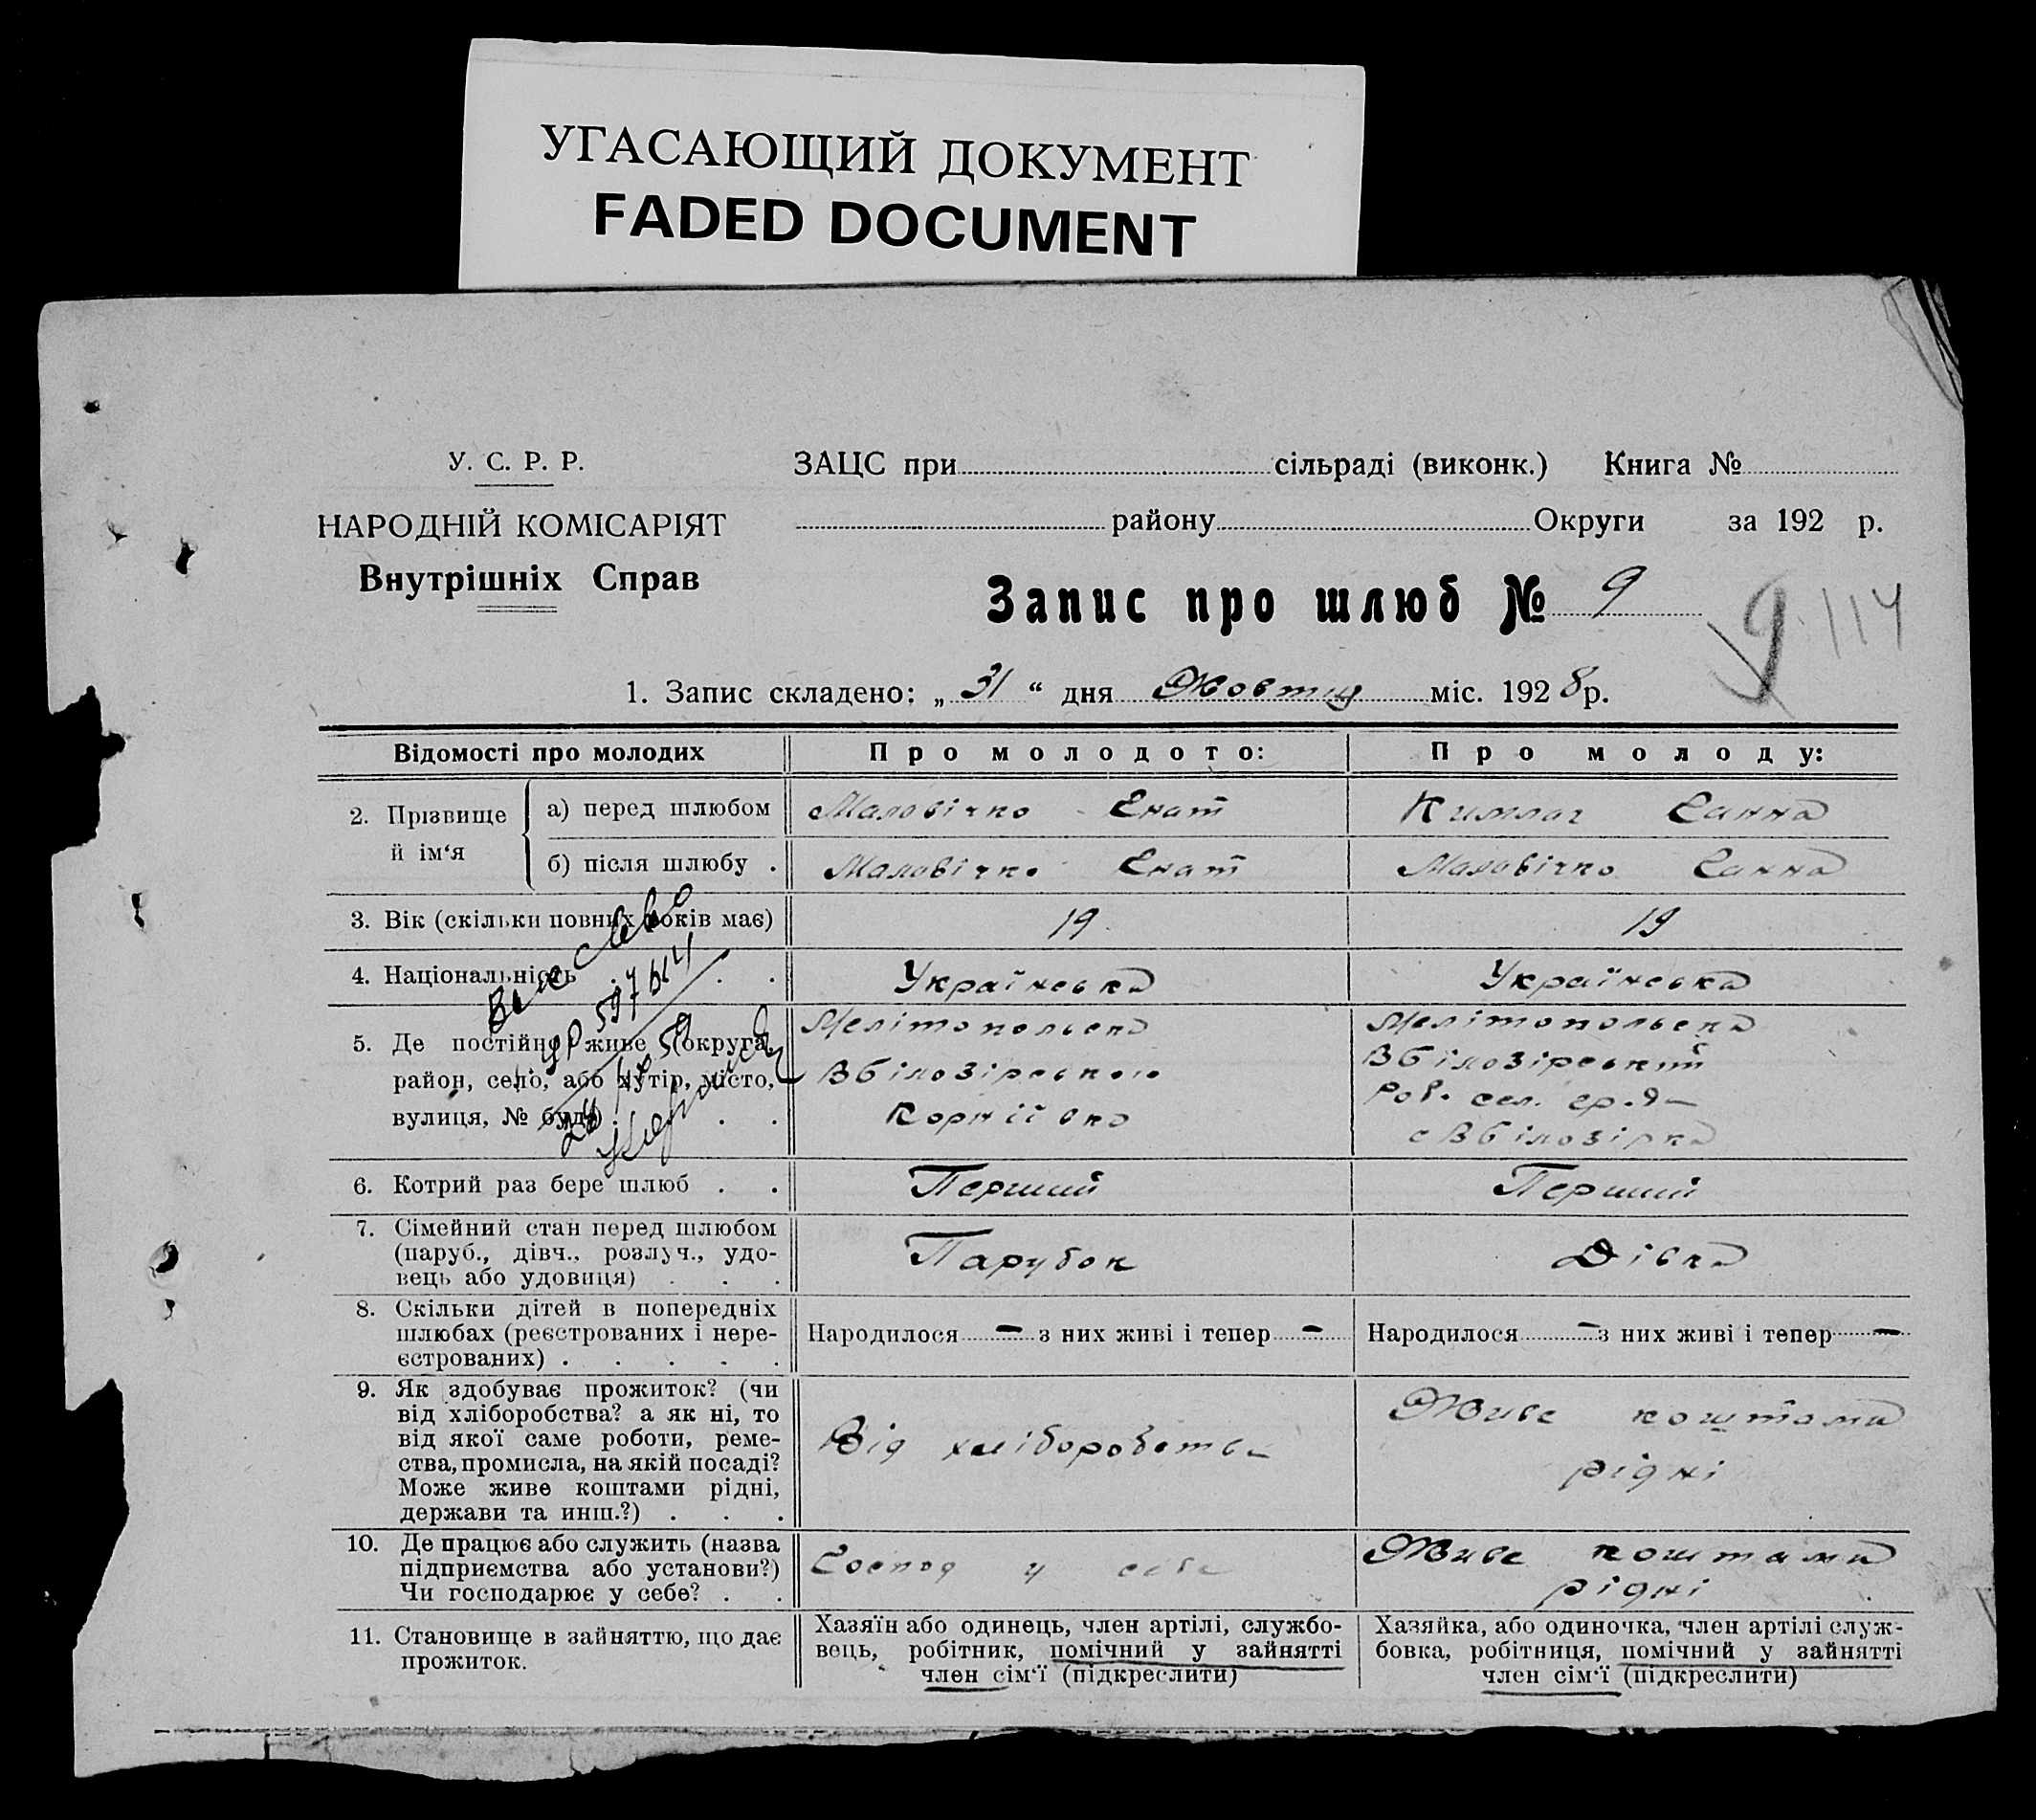 УГАСАЮЩИЙ ДОКУМЕНТ
FADED DOCUMENT
У. С. Р. Р.
НАРОДНІЙ КОМІСАРІЯТ
Внутрішніх Справ
ЗАЦС при сільраді (виконк.) Книга №
району Округи за 192 р.
Запис про шлюб № 9
9 114
1. Запис складено: „ 31 “ дня Жовтня міс. 1928 р.
Відомості про молодих
Про молодого:
Про молоду:
2. Прізвище й ім‘я
а) перед шлюбом
Маловічко Гнат
Кимлач Ганна
б) після шлюбу .
Маловічко Гнат
Маловічко Ганна
3. Вік (скільки повних років має)
19
19
4. Національність . . .
Українська
Українська
5. Де постійно живе (округа,
район, село, або хутір, місто,
вулиця, № буд.) . . .
Мелітопольска
ВБілозірського
Корніївка
Мелітопольска
ВБілозірський
с ВБілозірка
6. Котрий раз бере шлюб . .
Перший
Перший
7. Сімейний стан перед шлюбом
(паруб., дівч., розлуч., удо-
вець або удовиця) . . .
Парубок
Дівка
8. Скільки дітей в попередніх
шлюбах (реєстрованих і нере-
єстрованих) . . . . .
Народилося — з них живі і тепер —
Народилося — з них живі і тепер —
9. Як здобуває прожиток? (чи
від хліборобства? а як ні, то
від якої саме роботи, реме-
ства, промисла, на якій посаді?
Може живе коштами рідні,
держави та инш.?) . . .
Від хліборобства
Живе коштами
рідні
10. Де працює або служить (назва
підприємства або установи?)
Чи господарює у себе? . .
Господ у себе
Живе коштами
рідні
11. Становище в зайняттю, що дає
прожиток.
Хазяїн або одинець, член артілі, службо-
вець, робітник, помічний у зайнятті
член сім‘ї (підкреслити)
Хазяйка, або одиночка, член артілі служ-
бовка, робітниця, помічний у зайнятті
член сім‘ї (підкреслити)